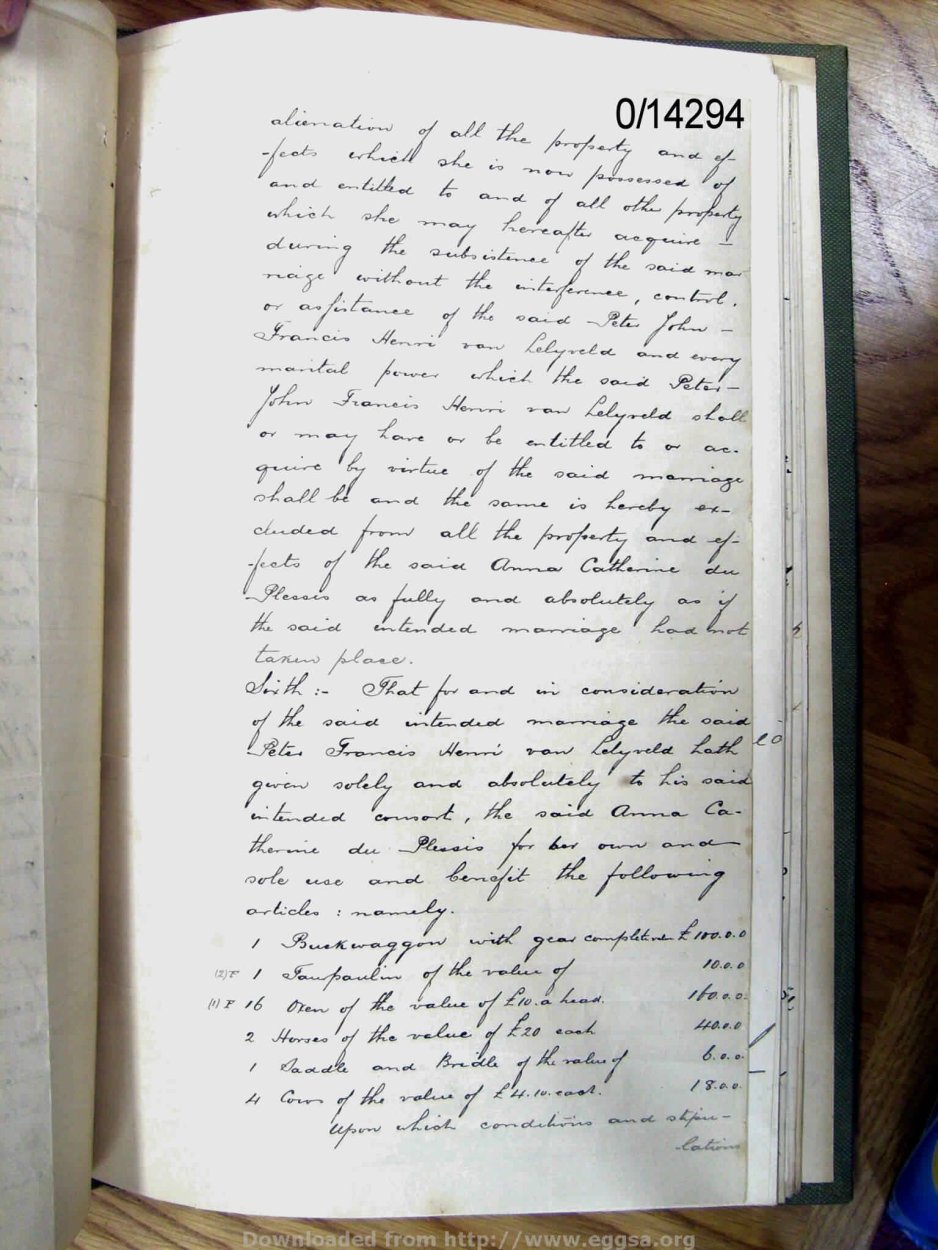 0/14294
alienation of all the property and ef-
-fects which she is now possessed of
and entitled to and of all other property
which she may hereafter acquire -
during the subsistence of the said mar
riage without the interference, control,
or assistance of the said Peter John -
Francis Henri van Lelyveld and every
marital power which the said Peter -
John Francis Henri van Lelyveld shall
or may have or be entitled to or ac-
quire by virtue of the said marriage
shall be and the same is hereby ex-
cluded from all the property and ef-
-fects of the said Anna Catherine du
Plessis as fully and absolutely as if
the said intended marriage had not
taken place.
Sixth :- That for and in consideration
of the said intended marriage the said
Peter Francis Henri van Lelyveld hath
given solely and absolutely to his said
intended consort, the said Anna Ca-
therine du Plessis for her own and
sole use and benefit the following
articles : namely.
1 Buckwaggon with gear complete £100.0.0
(2) F 1 Taurpaulin of the value of 10.0.0
(1) F 16 Oxen of the value of £10. a head. 160.0.0.
2 Horses of the value of £20 each 40.0.0
1 Saddle and Bridle of the value of 6.0.0.
4 Cows of the value of £4.10. each. 18.0.0.
Upon which conditions and stipu-
lations
Downloaded from http://www.eggsa.org